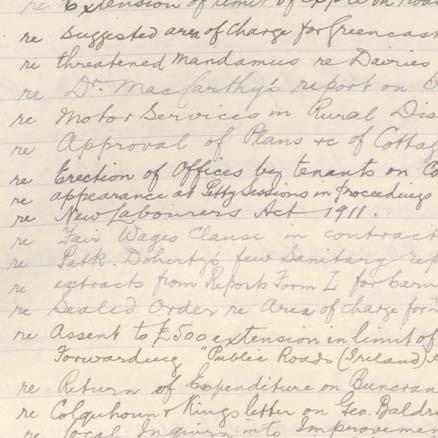 re Extension of limit of exp're on Road
re Suggested area of Charge for Greencast
re threatened Mandamus re Dairies
re Dr. MacCarthy's report on
re Motor Services in Rural Dis
re Approval of Plans &c of Cottag
re Erection of Offices by tenants on Co
re appearance at Petty Sessions in proceedings
re New Labourers Act 1911.
re Fair Wages Clause in contract
re Patk. Doherty's few Sanitary rep
re extracts from Report Form I for Carn
re Sealed Order re Area of Charge for
re Assent to £500 extension in limit of
Forwarding "Public Roads (Ireland)
re Return of Expenditure on Buncran
re Colquhoun & Kings letter on Geo. Baldr
re Local Inquiry into Improvemen